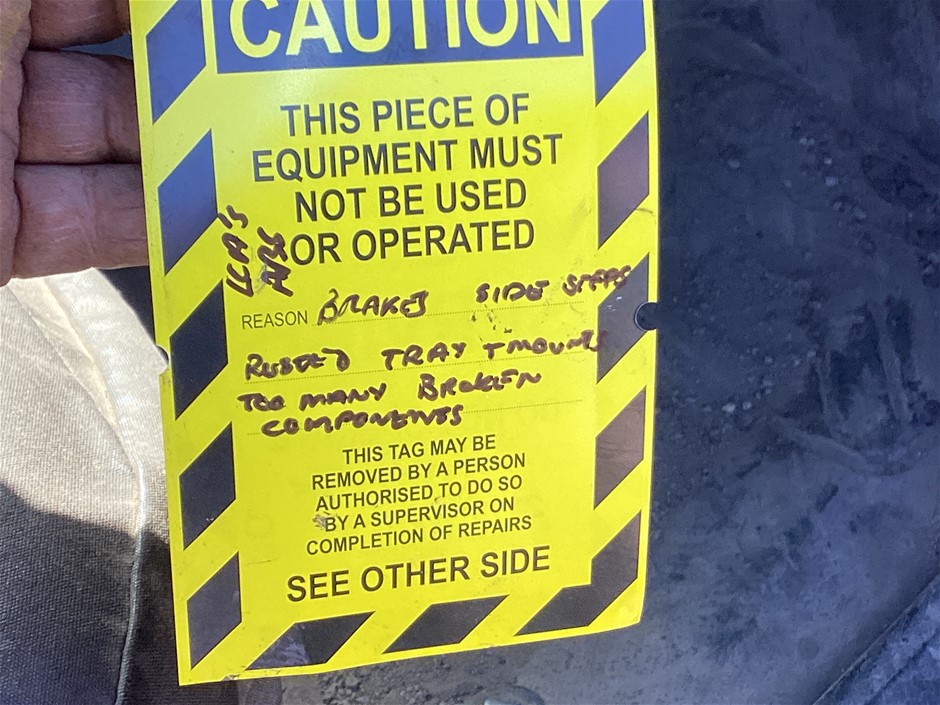 CAUTION
THIS PIECE OF
EQUIPMENT MUST
NOT BE USED
OR OPERATED
REASON BRAKES SIDE STEPS
RUSTED TRAY + MOUNTS
TOO MANY BROKEN
COMPONENTS
THIS TAG MAY BE
REMOVED BY A PERSON
AUTHORISED TO DO SO
BY A SUPERVISOR ON
COMPLETION OF REPAIRS
SEE OTHER SIDE